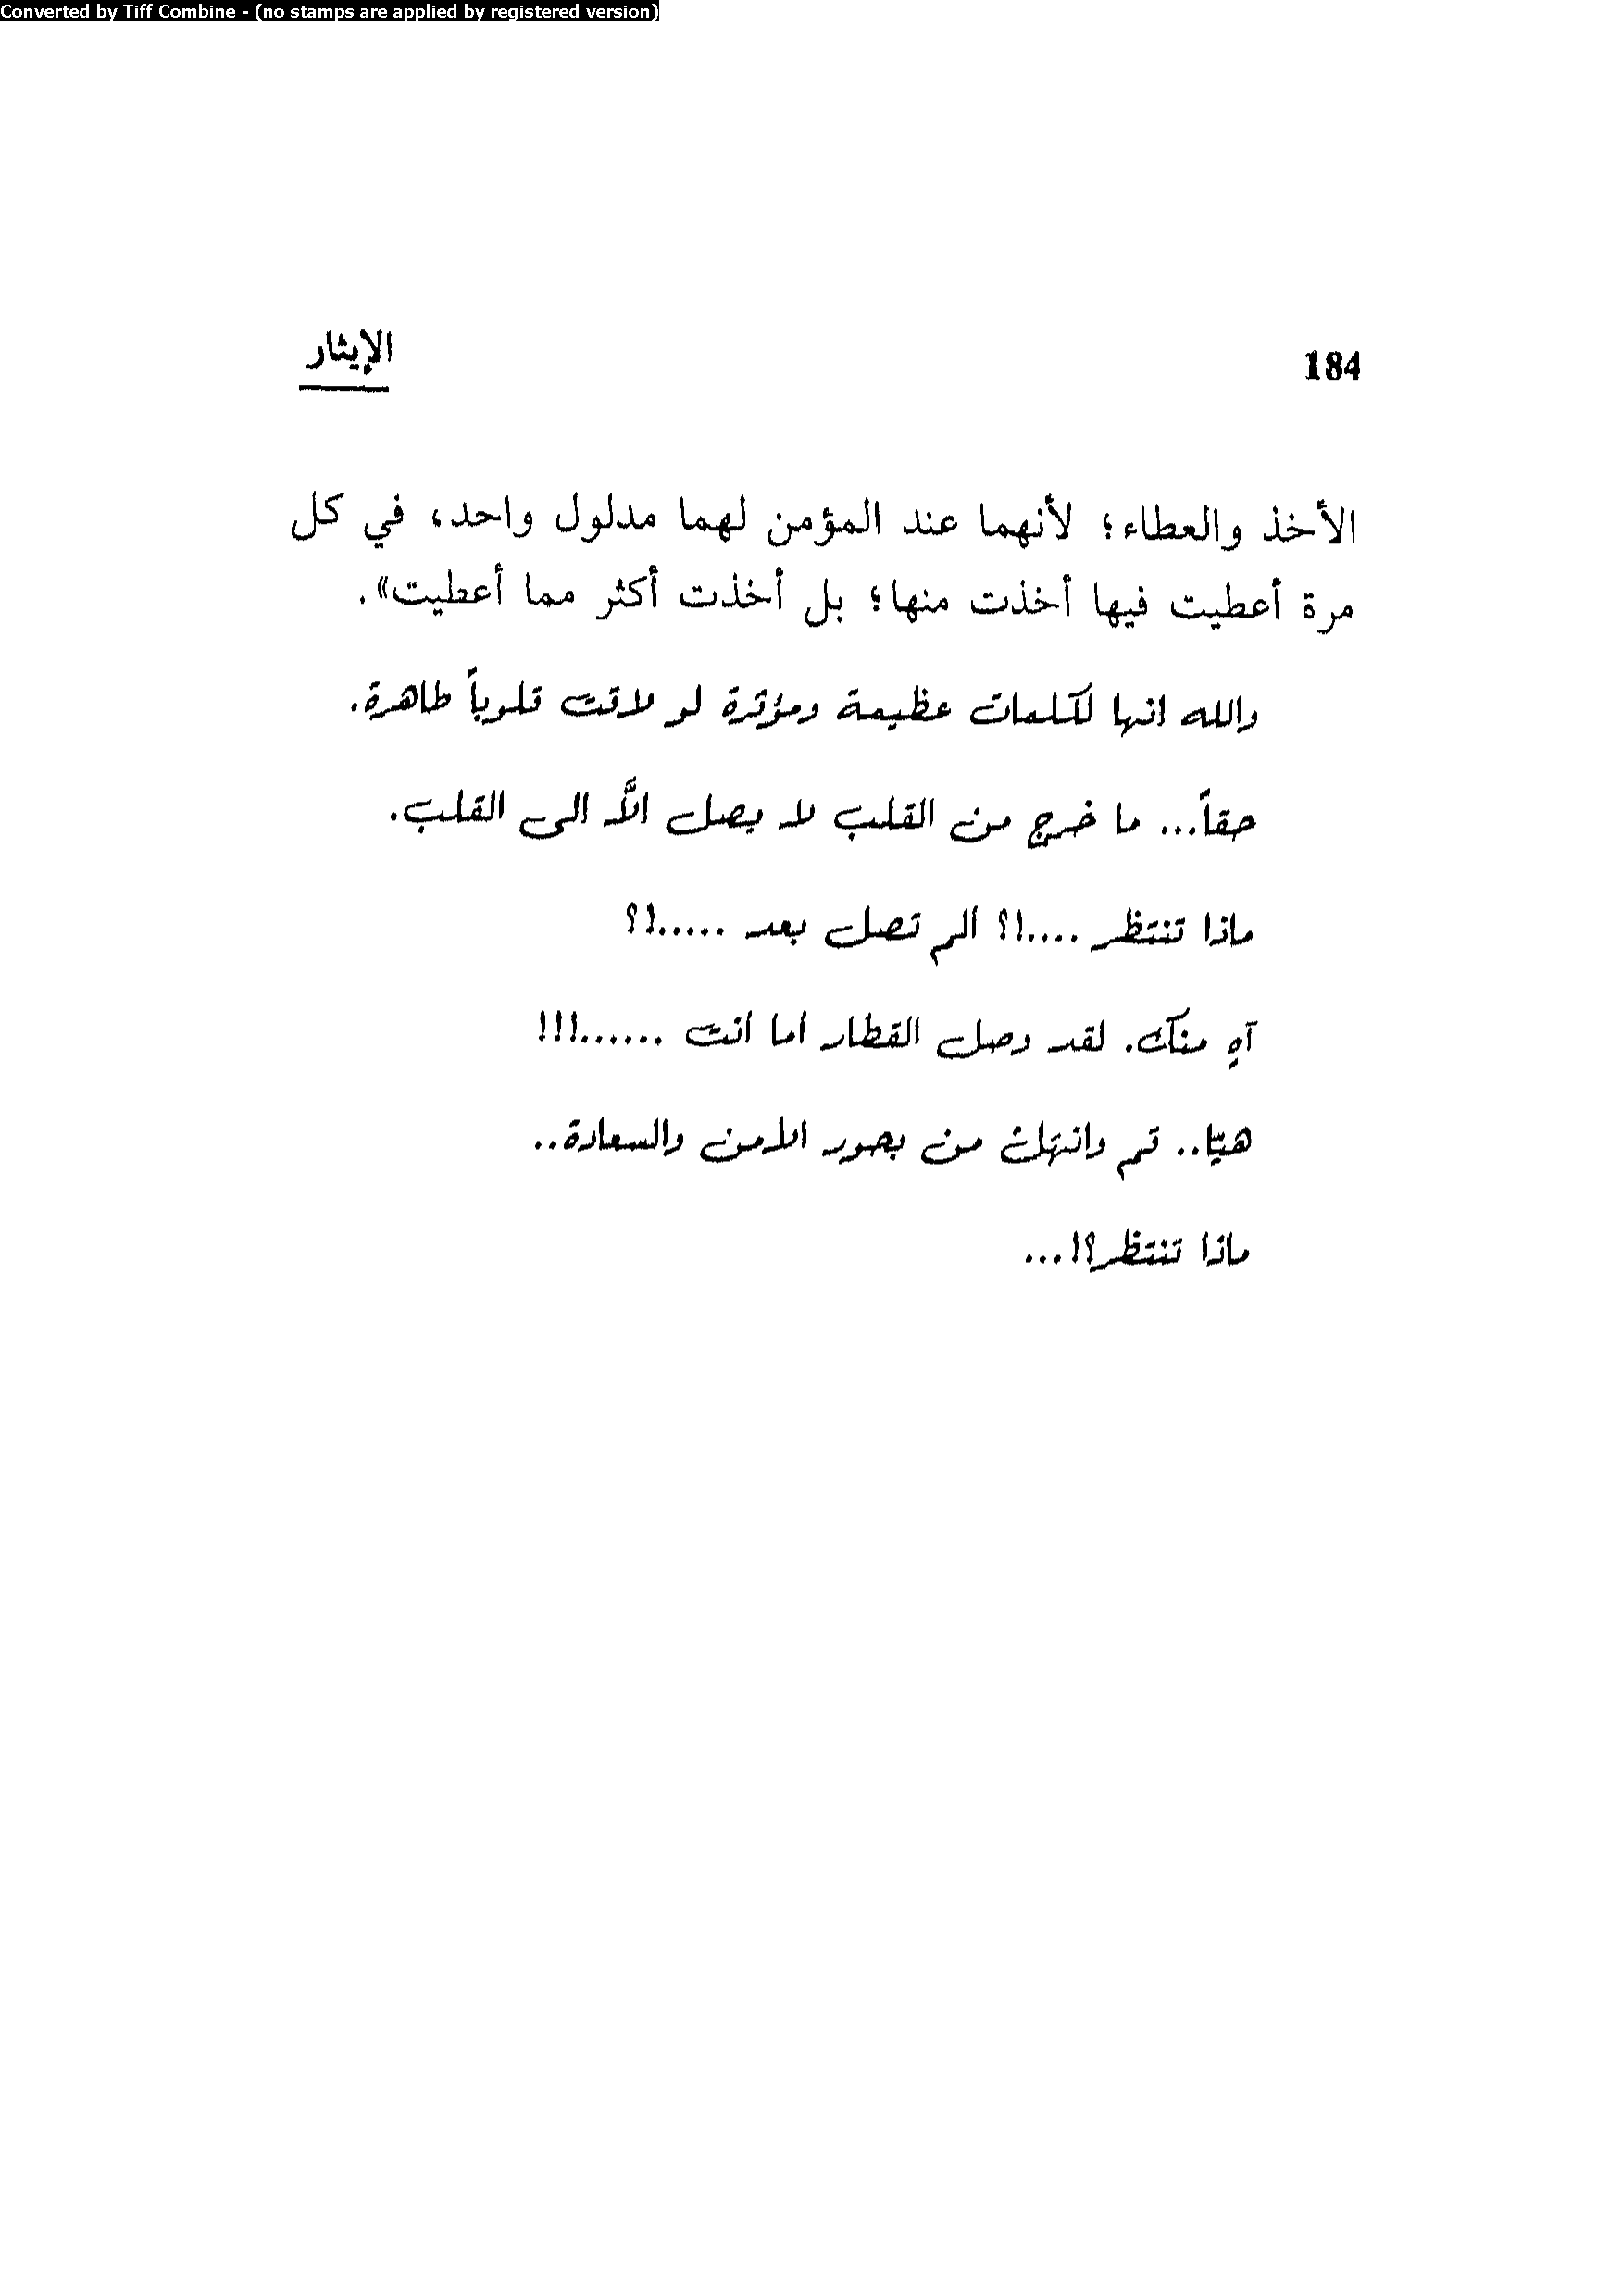 Converted by Tiff Combine - (no stamps are applied by registered version)
184 الإيثار
الأخذ والعطاء؛ لأنهما عند المؤمن لهما مدلول واحد، في كل
مرة أعطيت فيها أخذت منها؛ بل أخذت أكثر مما أعطيت».
والله انها لكلمات عظيمة ومؤثرة لو لاقت قلوباً طاهرة.
حقاً... ما خرج من القلب لا يصل الاَّ الى القلب.
ماذا تنتظر ....!؟ الم تصل بعد .....!؟
آهِ منك. لقد وصل القطار اما انت ......!!!
هيّا.. قم وانهل من بحور الأمن والسعادة..
ماذا تنتظر؟!...